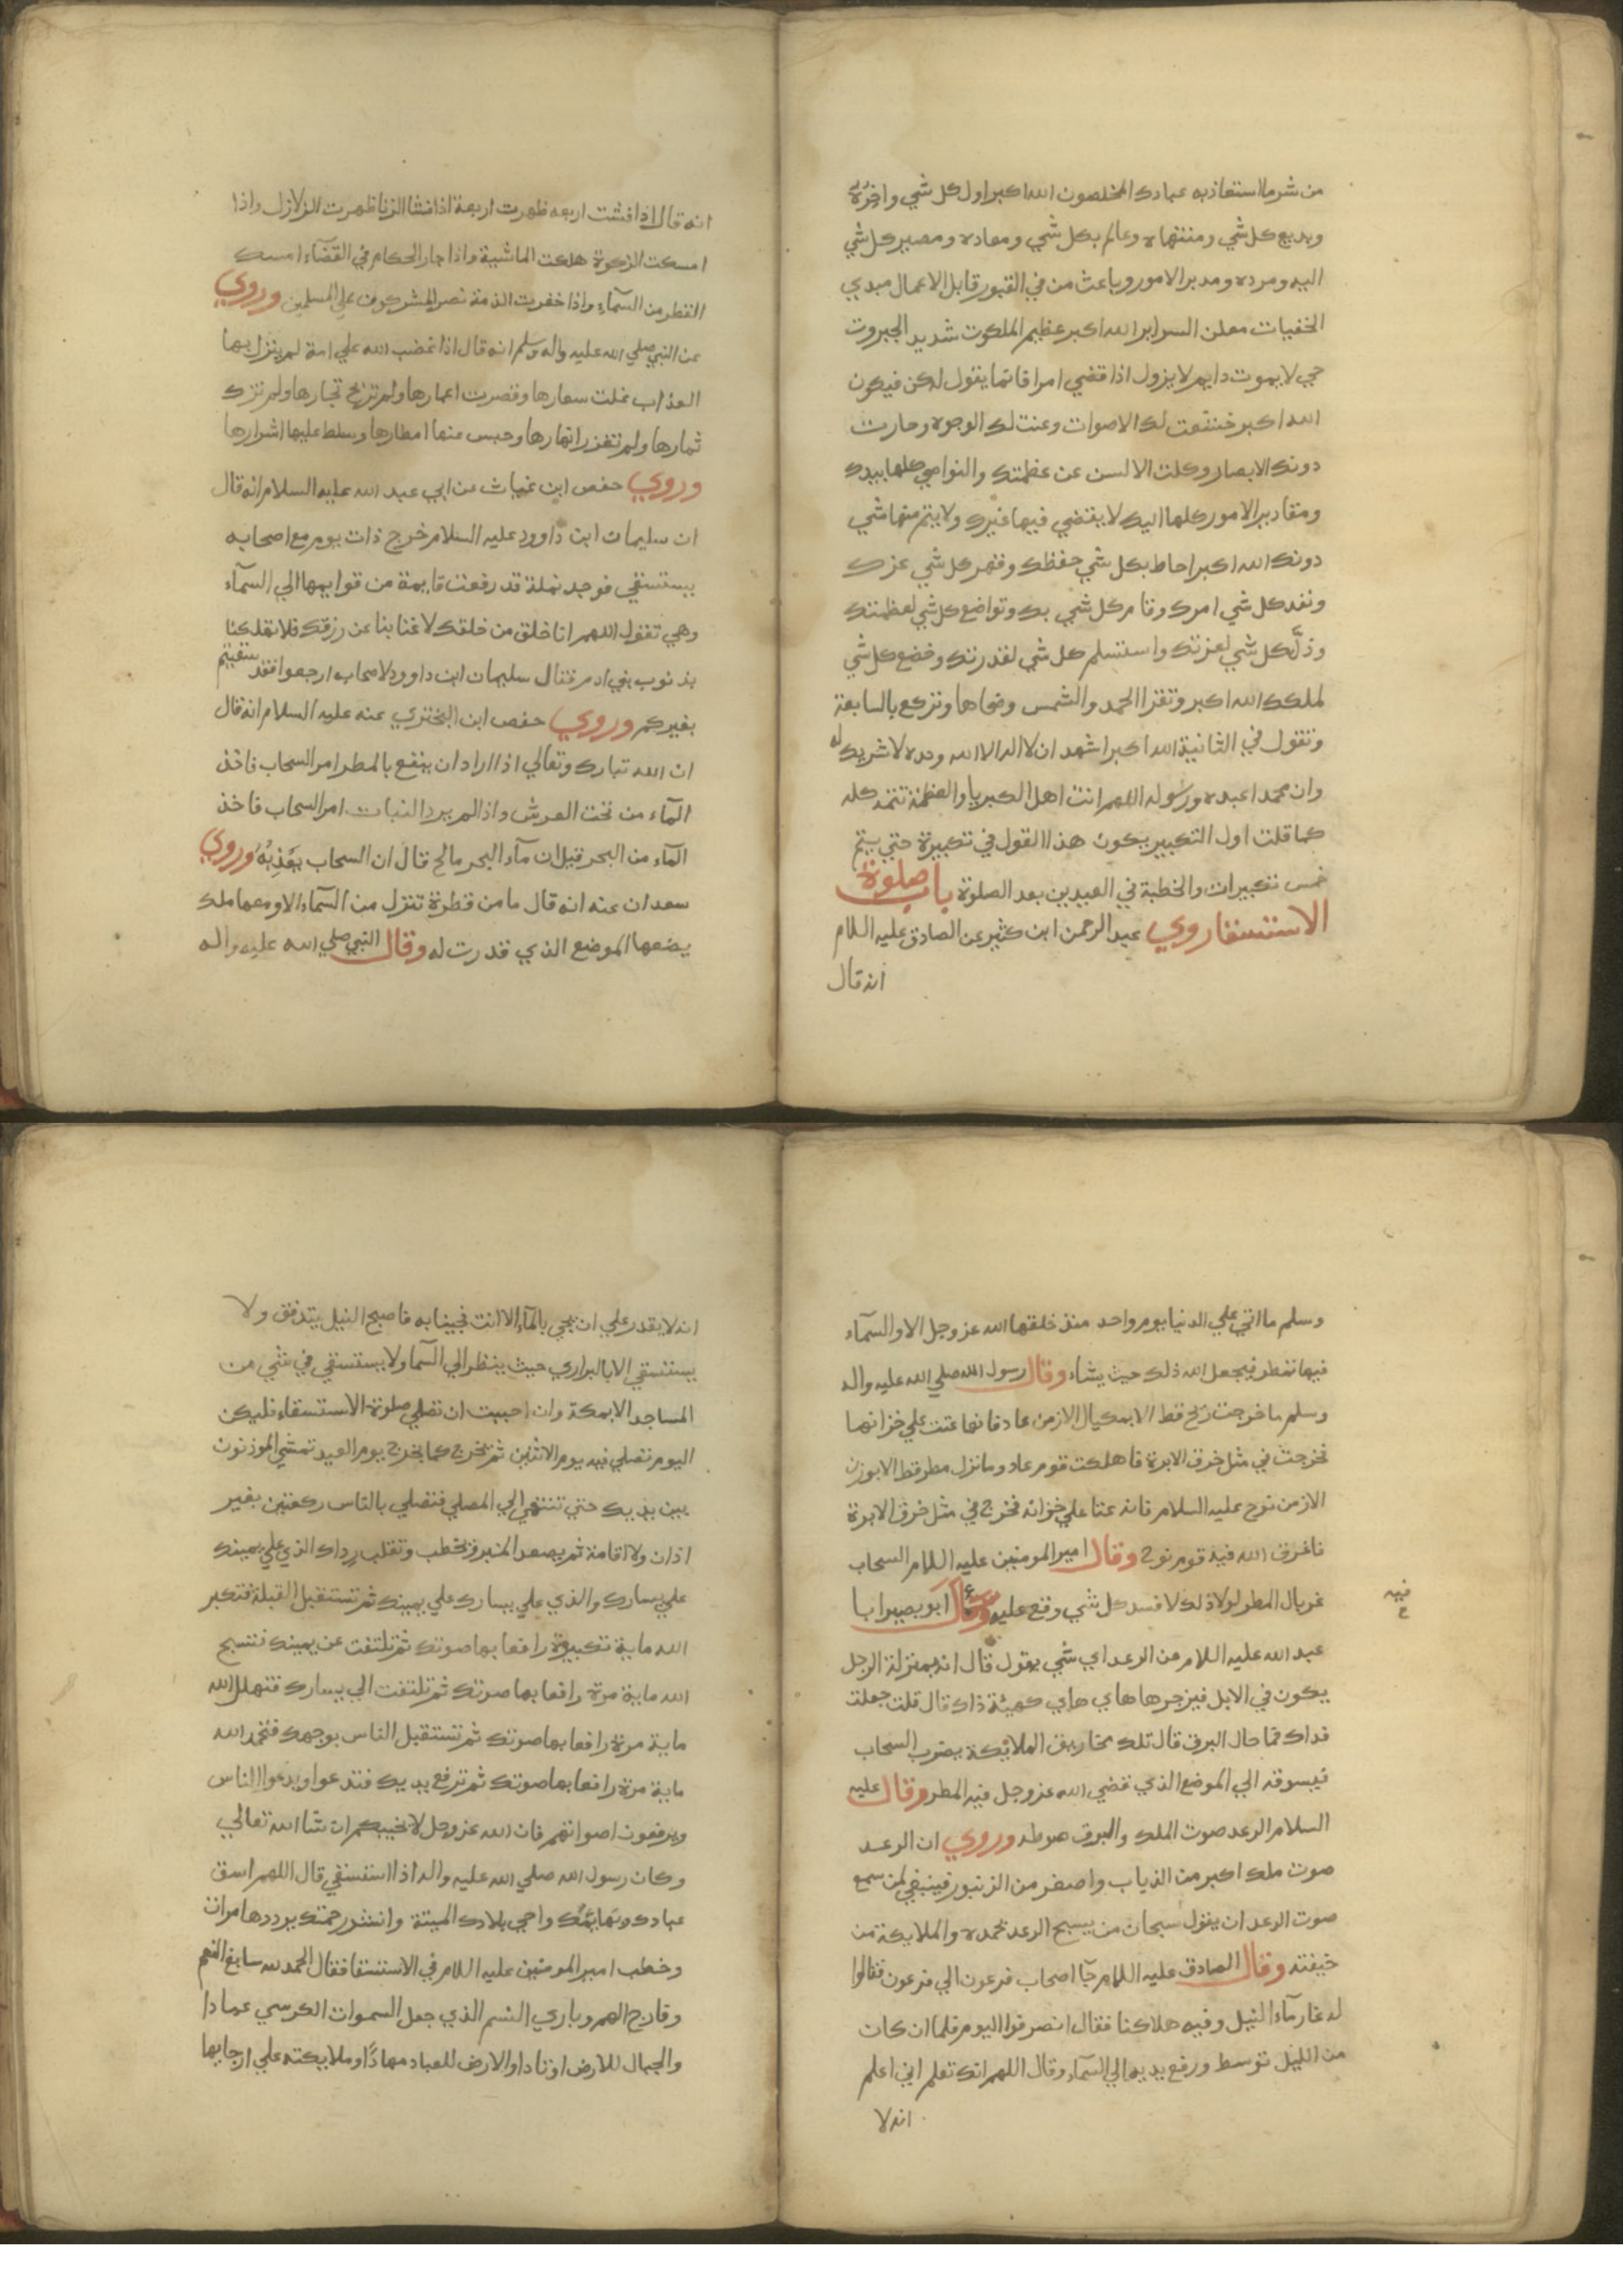 من شر ما استعاذ به عبادك المخلصون الله اكبر اول كل شي واخره
وبديع كل شي ومنتهاه وعالم بكل شي ومعاده ومصير كل شي
اليه ومرده ومدبر الامور وباعث من في القبور قابل الاعمال مبدي
الخفيات معلن السراير الله اكبر عظيم الملكوت شديد الجبروت
حي لا يموت دايم لا يزول اذا قضي امرا فانما يقول له كن فيكون
الله اكبر خشعت لك الاصوات وعنت لك الوجوه وحارت
دونك الابصار وكلت الالسن عن عظمتك والنواصي كلها بيدك
ومقادير الامور كلها اليك لا يقضي فيها غيرك ولا يتم منها شي
دونك الله اكبر احاط بكل شي حفظك وقهر كل شي عزك
ونفد كل شي امرك وقام كل شي بك وتواضع كل شي لعظمتك
وذل كل شي لعزتك واستسلم كل شي لقدرتك وخضع كل شي
لملكك الله اكبر وتقرا الحمد والشمس وضحاها وتركع بالسابعة
وتقول في الثانية الله اكبر اشهد ان لا اله الا الله وحده لا شريك له
وان محمدا عبده ورسوله اللهم انت اهل الكبريا والعظمة تتمه كله
كما قلت اول التكبير يكون هذا القول في تكبيرة حتي يتم
خمس تكبيرات والخطبة في العيدين بعد الصلوة باب صلوة
الاستسقا روي عبد الرحمن ابن كثير عن الصادق عليه السلام
انه قال
انه قال اذا فشت اربعه ظهرت اربعة اذا فشا الزنا ظهرت الزلازل واذا
امسكت الزكوة هلكت الماشية واذا جار الحكام في القضاء امسك
القطر من السماء واذا خفرت الذمة نصر المشركون علي المسلمين وروي
عن النبي صلي الله عليه واله وسلم انه قال اذا غضب الله علي امة لم ينزل بها
العذاب غلت سعارها وقصرت اعمارها ولم تربح تجارها ولم تزك
ثمارها ولم تغزر انهارها وحبس عنها امطارها وسلط عليها اشرارها
وروي حفص ابن غياث عن ابي عبد الله عليه السلام انه قال
ان سليمان ابن داوود عليه السلام خرج ذات يوم مع اصحابه
يستسقي فوجد نملة قد رفعت قايمة من قوايمها الي السماء
وهي تقول اللهم انا خلق من خلقك لا غنا بنا عن رزقك فلا تهلكنا
بذنوب بني ادم فقال سليمان ابن داوود لاصحابه ارجعوا فقد سقيتم
بغيركم وروي حفص ابن البختري عنه عليه السلام انه قال
ان الله تبارك وتعالي اذا اراد ان ينفع بالمطر امر السحاب فاخذ
الماء من تحت العرش واذا لم يرد النبات امر السحاب فاخذ
الماء من البحر قيل ان ماء البحر مالح قال ان السحاب يعذبه وروي
سعدان عنه انه قال ما من قطرة تنزل من السماء الا ومعها ملك
يضعها الموضع الذي قدرت له وقال النبي صلي الله عليه واله
وسلم ما اتي علي الدنيا يوم واحد منذ خلقها الله عز وجل الا والسماء
فيها تمطر فيجعل الله ذلك حيث يشاء وقال رسول الله صلي الله عليه واله
وسلم ما خرجت ريح قط الا بمكيال الا زمن عاد فانها عتت علي خزانها
فخرجت في مثل خرق الابرة فاهلكت قوم عاد وما نزل مطر قط الا بوزن
الا زمن نوح عليه السلام فانه عتا علي خزانه فخرج في مثل خرق الابرة
فاغرق الله فيه قوم نوح وقال امير المومنين عليه السلام السحاب
غربال المطر لولا ذلك لافسد كل شي وقع عليه وسال ابو بصير ابا
فيه
عبد الله عليه السلام عن الرعد اي شي يقول قال انه بمنزلة الرجل
يكون في الابل فيزجرها هاي هاي كهيئة ذاك قال قلت جعلت
فداك فما حال البرق قال تلك مخاريق الملائكة يضرب السحاب
فيسوقه الي الموضع الذي قضي الله عز وجل فيه المطر وقال عليه
السلام الرعد صوت الملك والبرق صوطه وروي ان الرعد
صوت ملك اكبر من الذباب واصغر من الزنبور فينبغي لمن سمع
صوت الرعد ان يقول سبحان من يسبح الرعد بحمده والملايكة من
خيفته وقال الصادق عليه السلام جآ اصحاب فرعون الي فرعون فقالوا
له غار ماء النيل وفيه هلاكنا فقال انصرفوا اليوم فلما ان كان
من الليل توسط ورفع يديه الي السماء وقال اللهم انك تعلم اني اعلم
انه لا
انه لا يقدر علي ان يجي بالماء الا انت فجينا به فاصبح النيل يتدفق ولا
يستسقي الا بالبراري حيث ينظر الي السما ولا يستسقي في شي من
المساجد الا بمكة وان احببت ان تصلي صلوة الاستسقاء فليكن
اليوم تصلي فيه يوم الاثنين ثم تخرج كما تخرج يوم العيد تمشي الموذنون
بين يديك حتي تنتهي الي المصلي فتصلي بالناس ركعتين بغير
اذان ولا اقامة ثم يصعد المنبر وتخطب وتقلب رداك الذي علي يمينك
علي يسارك والذي علي يسارك علي يمينك ثم تستقبل القبلة فتكبر
الله ماية تكبيرة رافعا بها صوتك ثم تلتفت عن يمينك فتسبح
الله ماية مرة رافعا بها صوتك ثم تلتفت الي يسارك فتهلل الله
ماية مرة رافعا بها صوتك ثم تستقبل الناس بوجهك فتحمد الله
ماية مرة رافعا بها صوتك ثم ترفع يديك فتدعوا ويدعوا الناس
ويرفعون اصواتهم فان الله عز وجل لا يخيبكم ان شا الله تعالي
وكان رسول الله صلي الله عليه واله اذا استسقي قال اللهم اسق
عبادك وبهايمك واحي بلادك الميتة وانشر رحمتك يرددها مرات
وخطب امير المومنين عليه السلام في الاستسقا فقال الحمد لله سابغ النعم
وفارج الهم وباري النسم الذي جعل السموات الكرسي عمادا
والجبال للارض اوتادا والارض للعباد مهادا وملايكته علي ارجايها